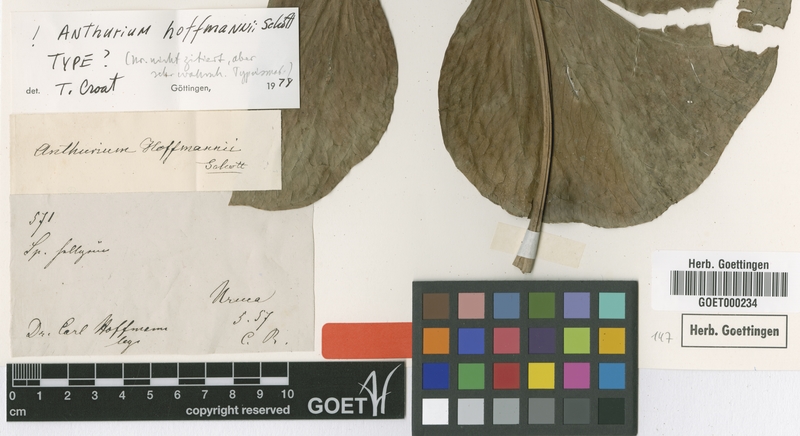 ! Anthurium hoffmannii Schott
TYPE? (Nr. nicht zitiert, aber
sehr wahrsch. Typusmat.)
det. T. Croat Göttingen, 1979
Anthurium Hoffmannii
Schott
571
Sp.
Uruca
3. 57
Dr. Carl Hoffmann C. R.
legs
0 1 2 3 4 5 6 7 8 9 10
cm copyright reserved GOET
Herb. Goettingen
GOET000234
147 Herb. Goettingen